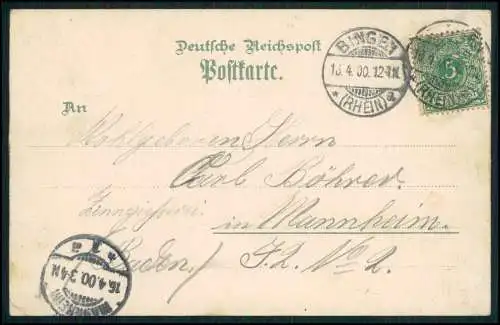 Deutsche Reichspost
Postkarte.
BINGEN
16.4.00.12-1N.
* (RHEIN) *
5
(RHEIN)
An
Wohlgeboren Herrn
Carl Böhrer
Zinngießerei
in Mannheim
(Baden) F. 2. No 2.
MANNHEIM
16.4.00 3-4N